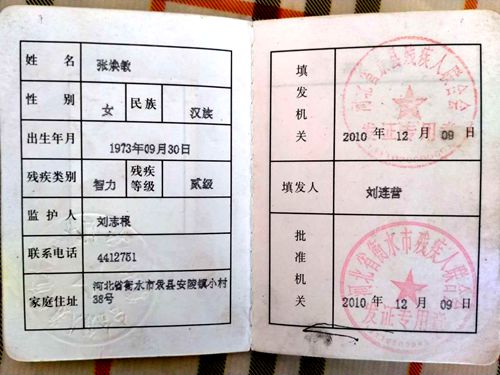 姓 名 张焕敏
性 别 女 民族 汉族
出生年月 1973年09月30日
残疾类别 智力 残疾等级 贰级
监 护 人 刘志根
联系电话 4412751
家庭住址 河北省衡水市景县安陵镇小村
38号
填发机关 2010 年 12 月 09 日
河北省景县残疾人联合会
发证专用章
填发人 刘连营
批准机关 2010 年 12 月 09 日
河北省衡水市残疾人联合会
发证专用章